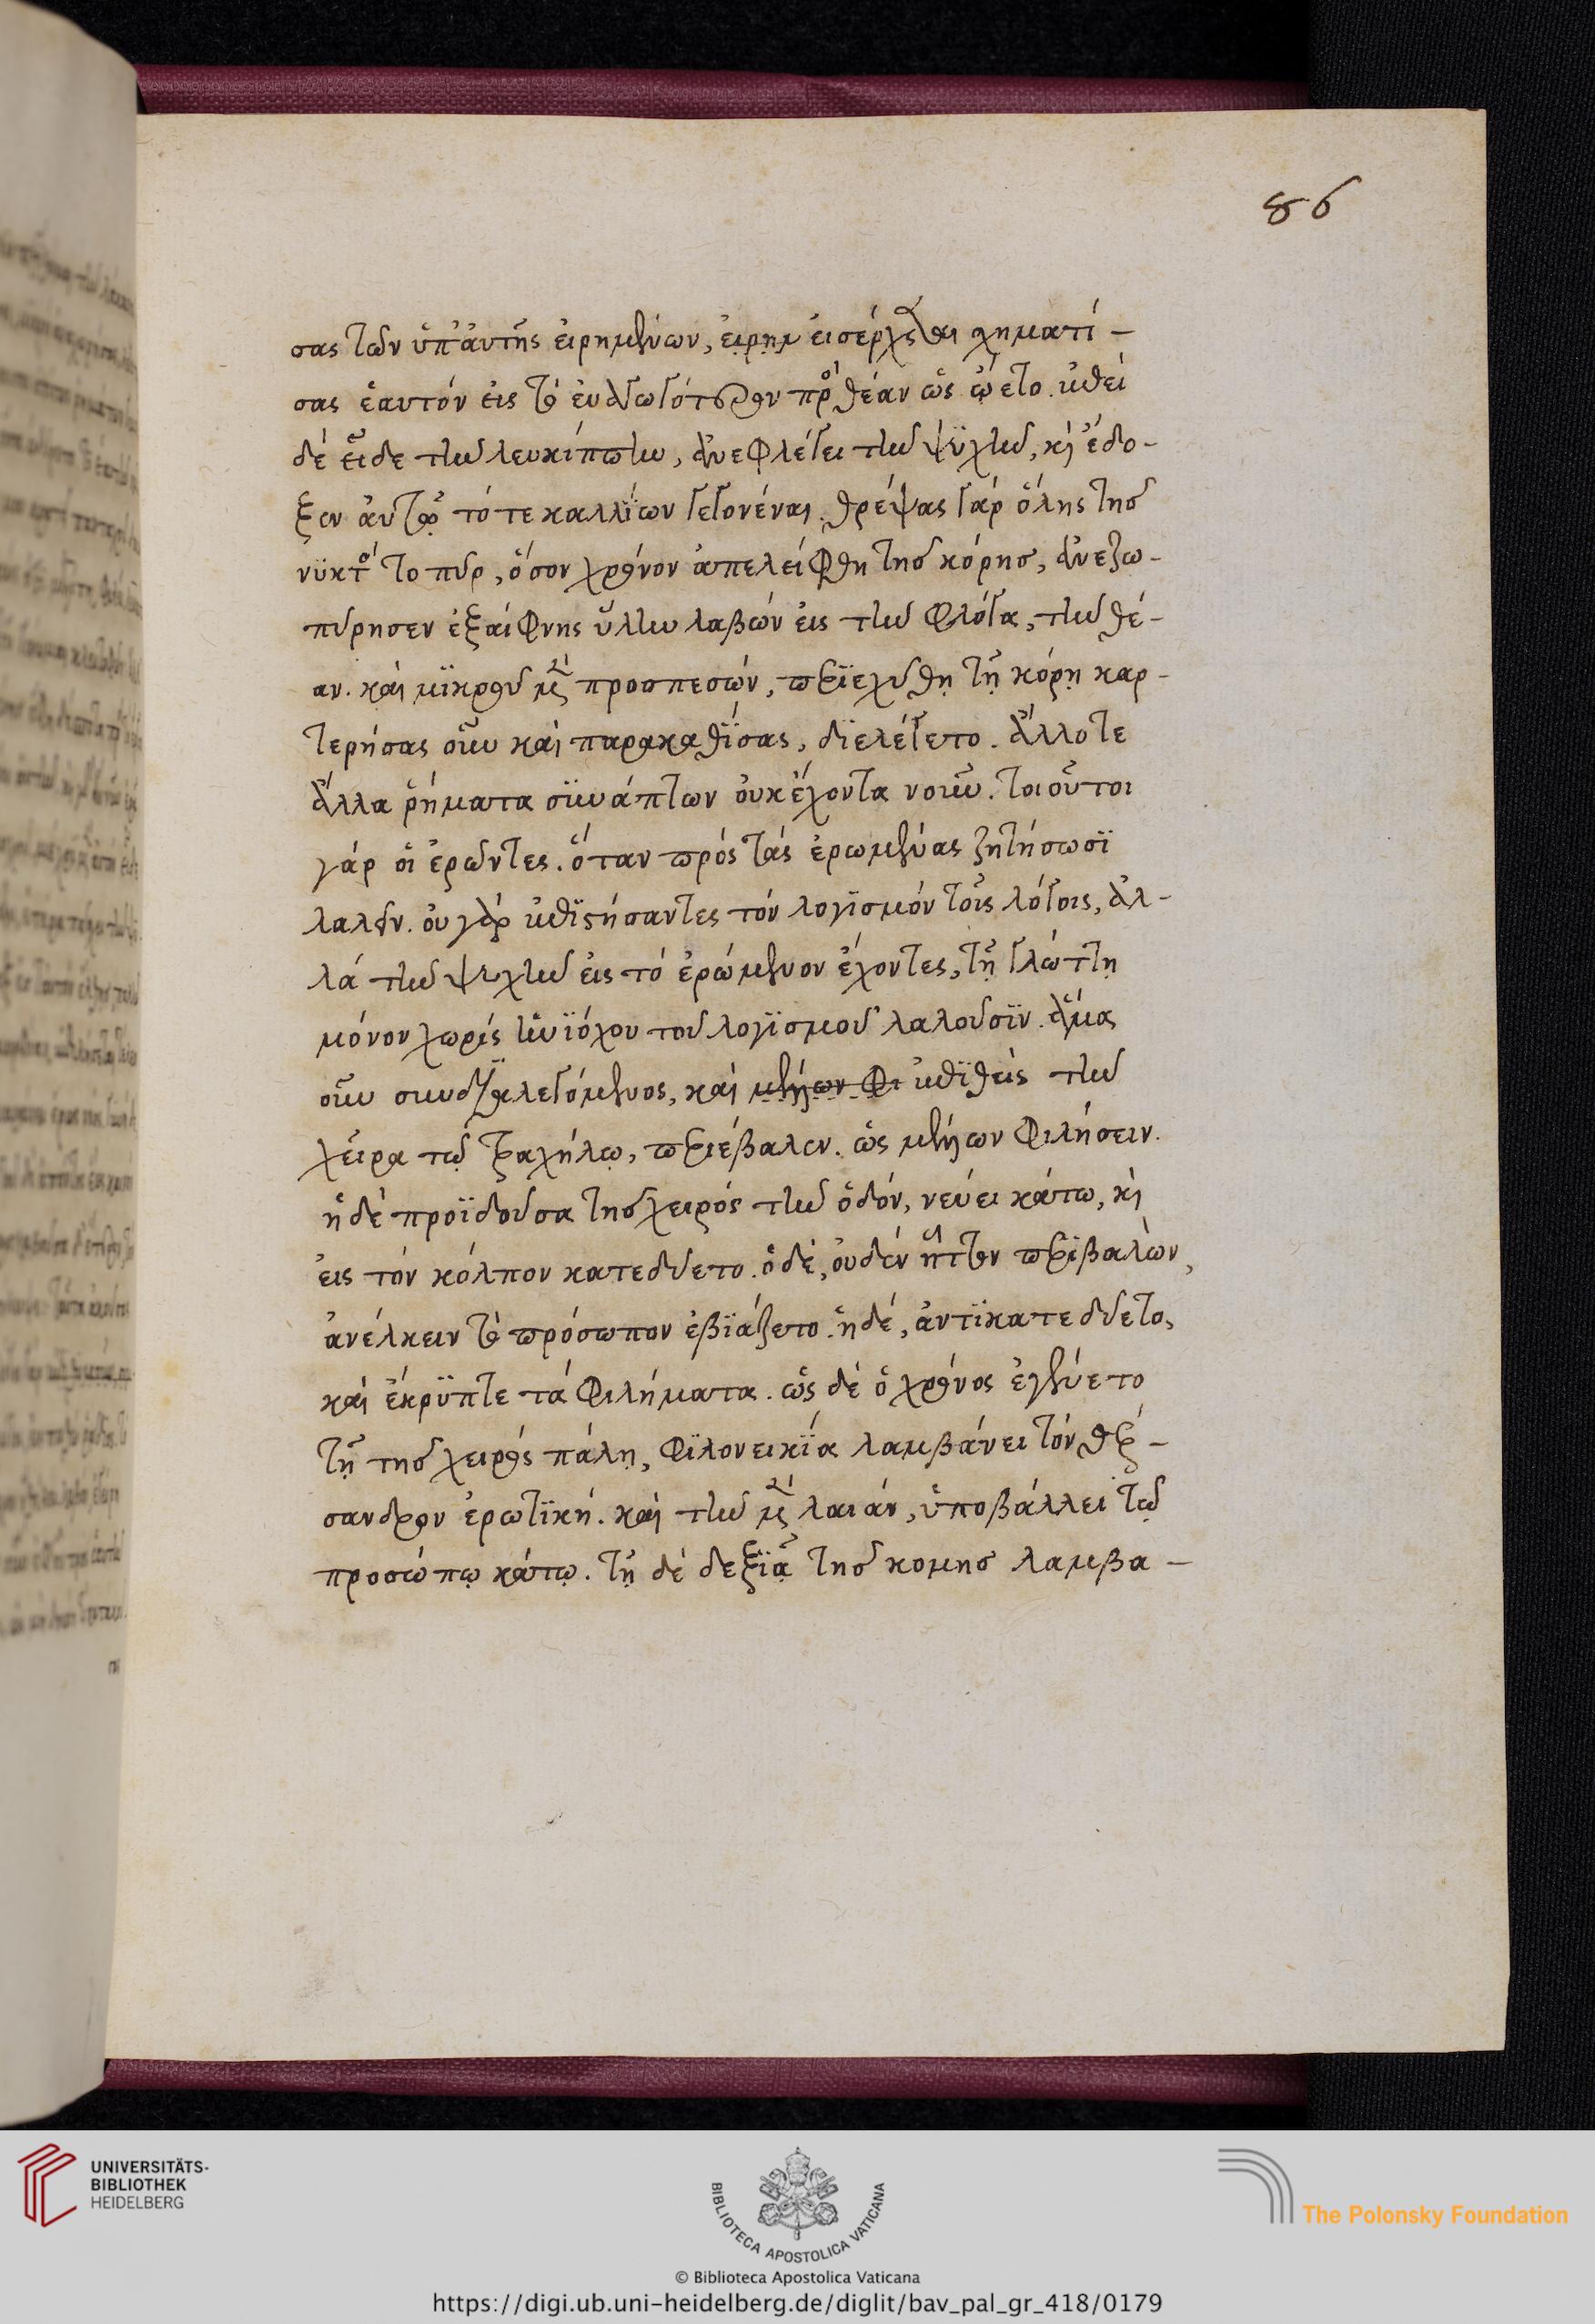 86
σας τῶν ὑπ' ἀυτῆς ἐιρημένων, ἐιρημ εἰσέρχεσθαι σχηματί-
σας ἑαυτόν ἐις τὸ ἐυαγωγότερον πρὸς θέαν ὡς ᾤετο. ἐπεὶ
δέ εἶδε τὴν λευκίππην, ἀνεφλέγει τὴν ψϋχὴν, κὶ ἔδο-
ξεν ἀυτῷ τότε καλλϊων γεγονέναι. θρέψας γάρ ὅλης τῆσ
νϋκτὸς το πῦρ, ὅσον χρόνον ἀπελείφθη τῆσ κόρησ, ἀνεζω-
πύρησεν ἐξαίφνης ὕλην λαβών ἐις τὴν φλόγα, τὴν θέ-
αν. καὶ μϊκροῦ μὲν προσπεσών, περϊεχύθη τῇ κόρῃ καρ-
τερήσας οὖν καὶ παρακαθΐσας, δϊελέγετο. ἄλλοτε
ἄλλα ῥήματα σϋνάπτων ὀυκ ἔχοντα νοῦν. τοιοῦτοι
γάρ ὁι ἐρῶντες. ὅταν πρός τάς ἐρωμένας ζητήσωσϊ
λαλεῖν. ὀυ γὰρ ἐπϊστήσαντες τόν λογϊσμόν τοῖς λόγοις, ἀλ-
λά τὴν ψυχὴν ἐις τό ἐρώμενον ἔχοντες, τῇ γλώττῃ
μόνον χωρίς ἡνϊόχου τοῦ λογϊσμοῦ λαλοῦσϊν. ἅμα
οὖν συνδϊαλεγόμενος, καὶ μέλλων φι ἐπϊθεὶς τὴν
χεῖρα τῷ τραχήλῳ, περιέβαλεν. ὡς μέλλων φιλήσειν.
ἡ δὲ προϊδοῦσα τῆσ χειρός τὴν ὁδόν, νεύει κάτω, κὶ
ἐις τόν κόλπον κατεδύετο. ὁ δέ, ὀυδέν ἧττον περϊβαλὼν,
ἀνέλκειν τὸ πρόσωπον ἐβϊάζετο. ἡ δέ, ἀντϊκατεδύετο,
καὶ ἔκρϋπτε τά φιλήματα. ὡς δέ ὁ χρόνος ἐγένετο
τῇ τῆσ χειρός πάλῃ, φϊλονεικΐα λαμβάνει τόν θέρ-
σανδρον ἐρωτϊκή. καὶ τὴν μὲν λαιάν, ὑποβάλλει τῷ
προσώπῳ κάτῳ. τῇ δέ δεξϊᾷ τῆσ κομησ λαμβα-
UNIVERSITÄTS-
BIBLIOTHEK
HEIDELBERG
BIBLIOTECA APOSTOLICA VATICANA
The Polonsky Foundation
© Biblioteca Apostolica Vaticana
https://digi.ub.uni-heidelberg.de/diglit/bav_pal_gr_418/0179